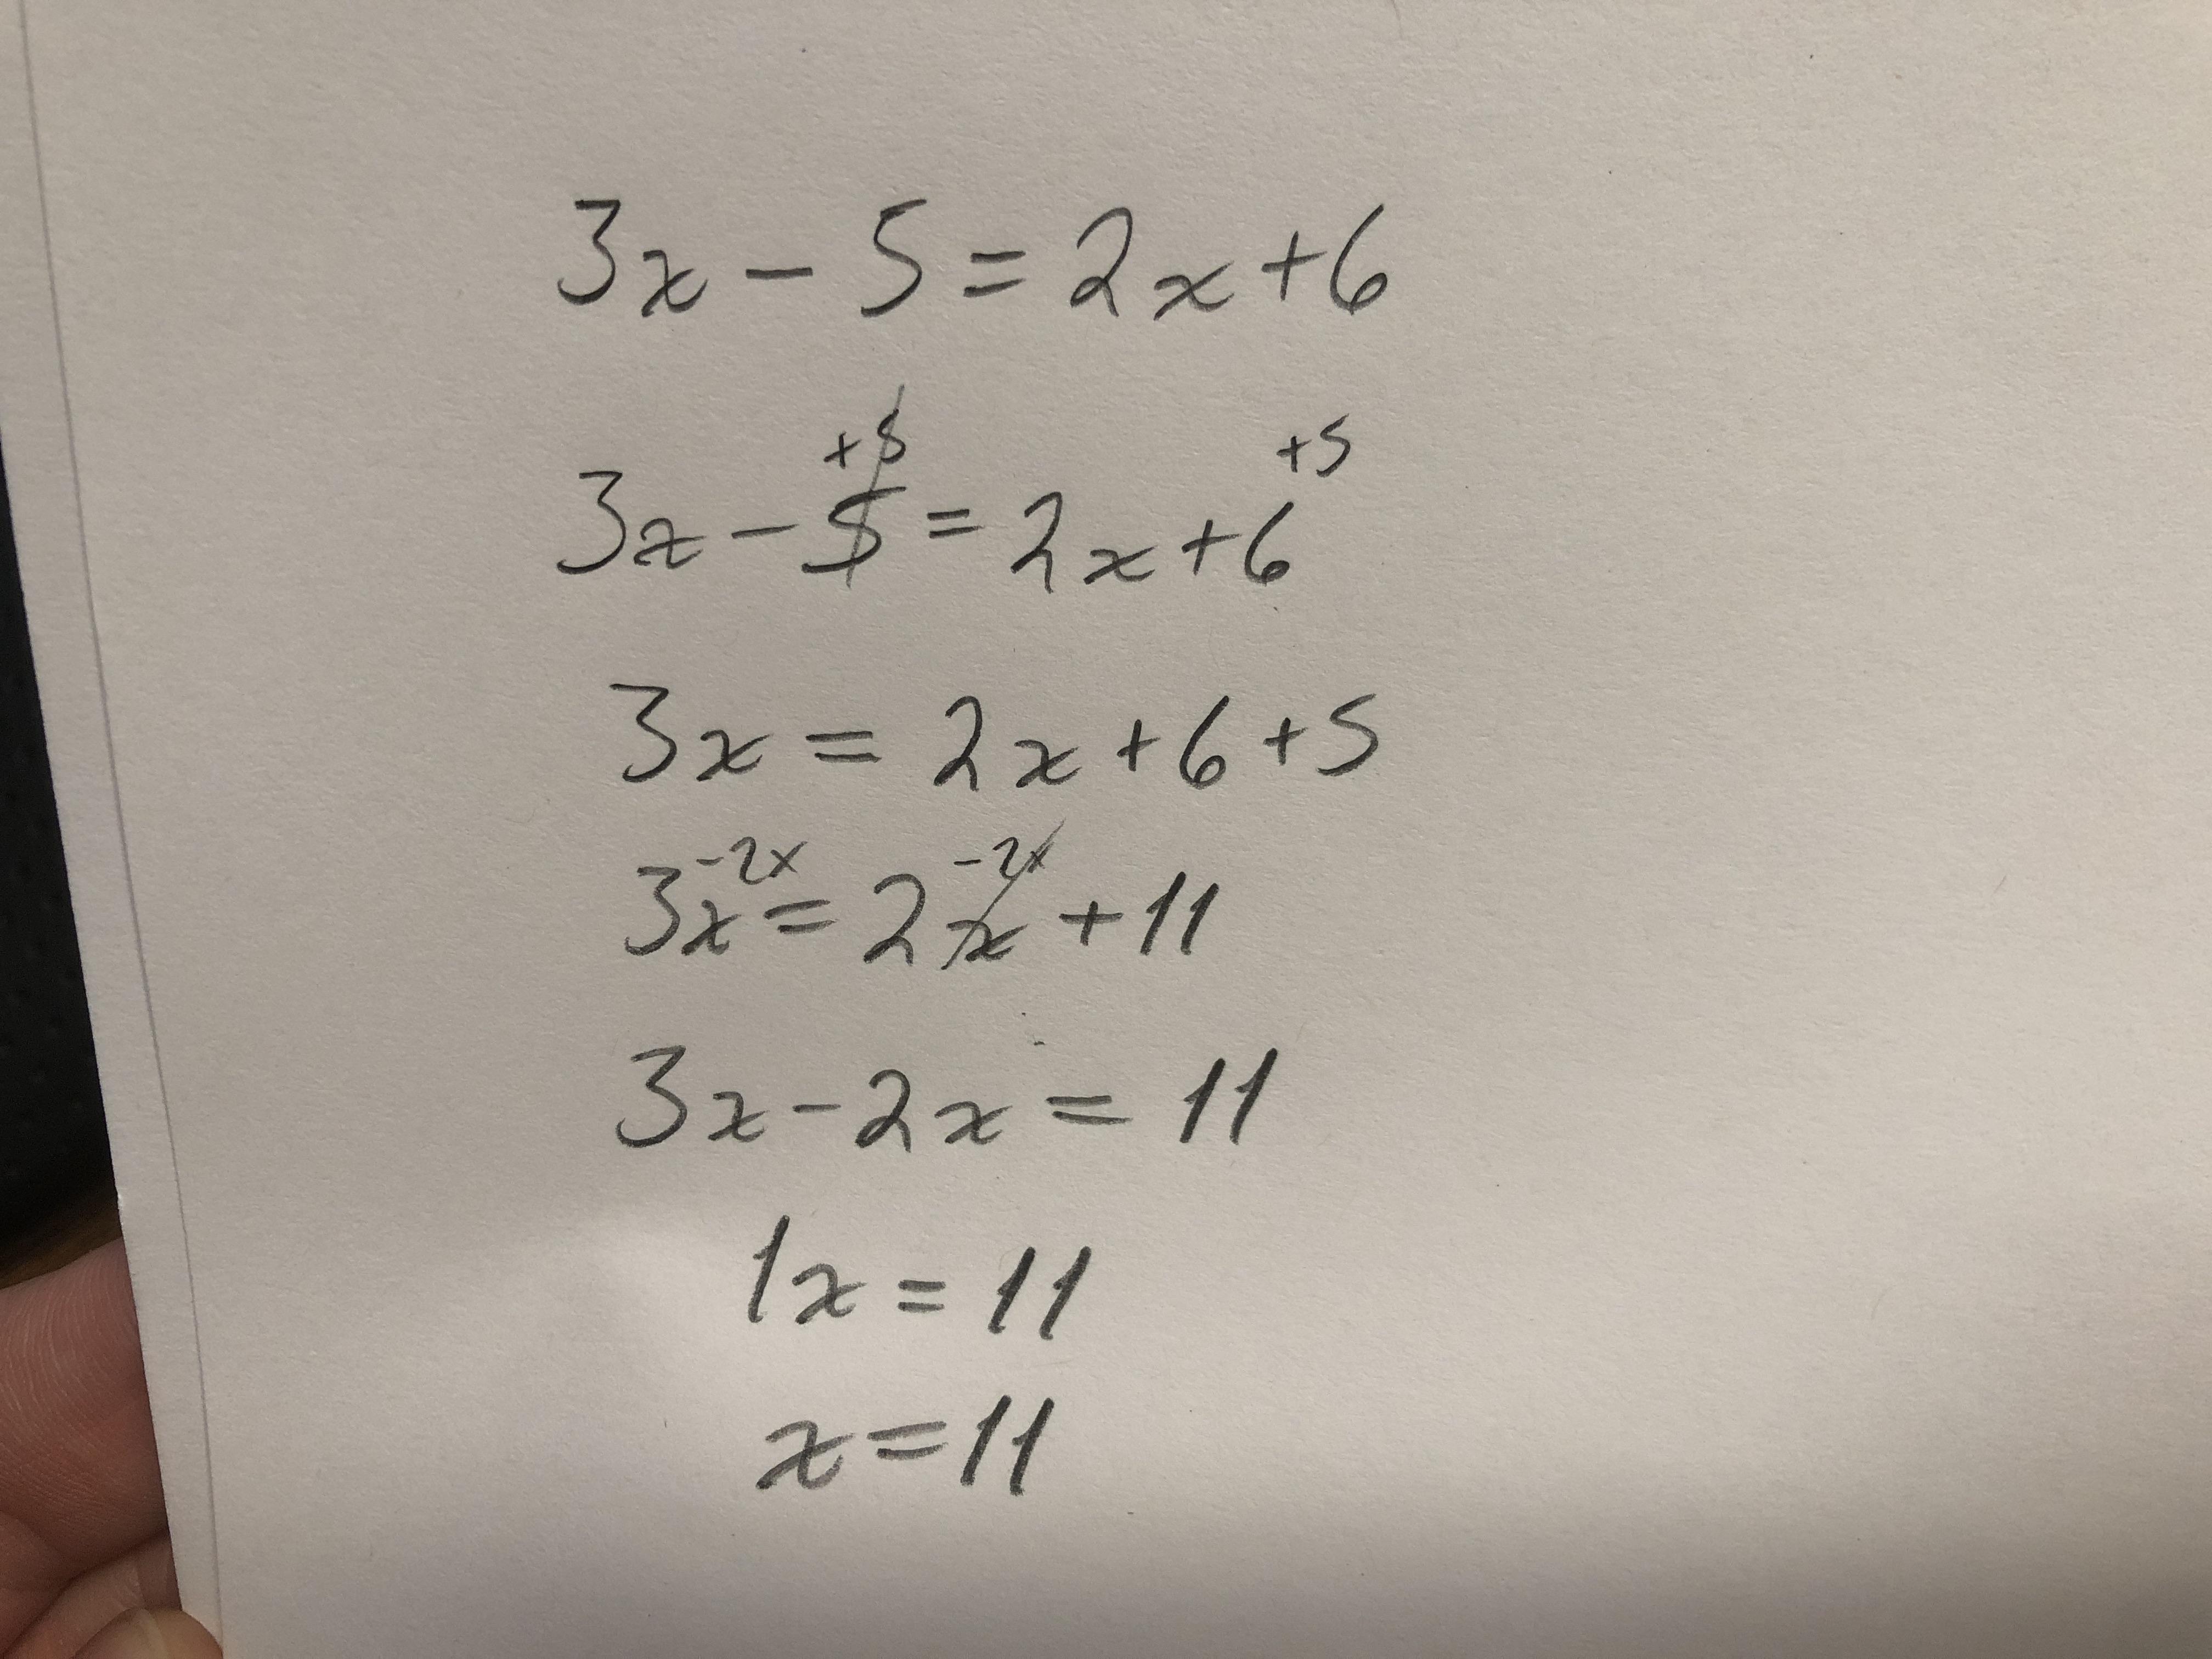 3x - 5 = 2x + 6
+5 +5
3x - 5 = 2x + 6
3x = 2x + 6 + 5
-2x -2x
3x = 2x + 11
3x - 2x = 11
1x = 11
x = 11